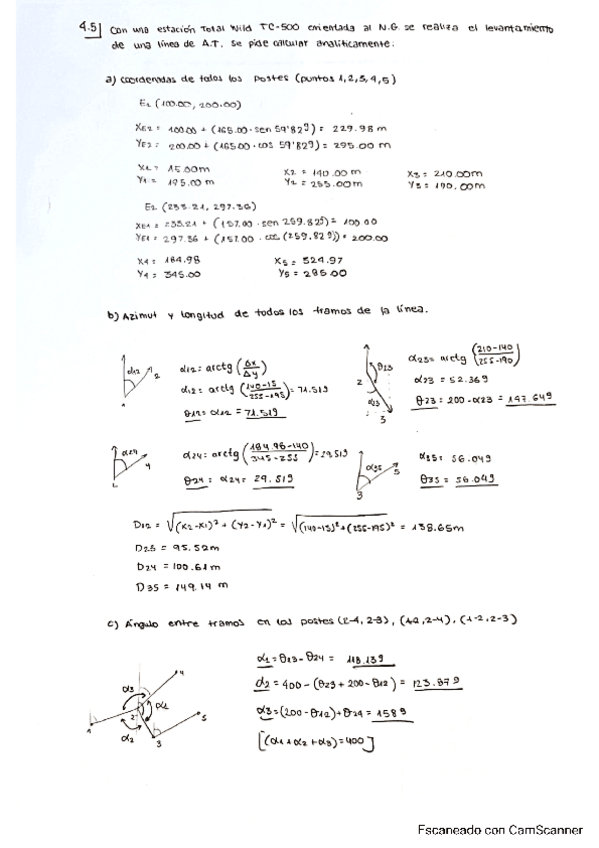 4.5] Con una estación Total Wild TC-500 orientada al N.G. se realiza el levantamiento
de una línea de A.T. Se pide calcular analíticamente:
a) coordenadas de todos los postes (puntos 1,2,3,4,5)
E1 (100.00, 200.00)
XE2 = 100.00 + (165.00 · sen 59'82g) = 229.98 m
YE2 = 200.00 + (165.00 · cos 59'82g) = 295.00 m
X1 = 15.00m X2 = 140.00 m X3 = 210.00m
Y1 = 195.00 m Y2 = 255.00m Y3 = 190.00m
E2 (233.21, 297.36)
XE1 = 233.21 + (157.00 · sen 259.82g) = 100.00
YE1 = 297.36 + (157.00 · cos (259.82g)) = 200.00
X4 = 184.98 X5 = 324.97
Y4 = 345.00 Y5 = 285.00
b) Azimut y longitud de todos los tramos de la línea.
α12 = arctg (Δx/Δy)
α12 = arctg (140-15/255-195) = 71.51g
θ12 = α12 = 71.51g
α23 = arctg (210-140/255-190)
α23 = 52.36g
θ23 = 200 - α23 = 147.64g
α24 = arctg (184.98-140/345-255) = 29.51g
θ24 = α24 = 29.51g
α35 = 56.04g
θ35 = 56.04g
D12 = √(X2-X1)² + (Y2-Y1)² = √(140-15)² + (255-195)² = 138.65m
D23 = 95.52m
D24 = 100.61 m
D35 = 149.14 m
c) Ángulo entre tramos en los postes (2-4, 2-3), (1-2, 2-4), (1-2, 2-3)
α1 = θ23 - θ24 = 118.13g
α2 = 400 - (θ23 + 200 - θ12) = 123.87g
α3 = (200 - θ12) + θ24 = 158g
[(α1 + α2 + α3) = 400]
Escaneado con CamScanner